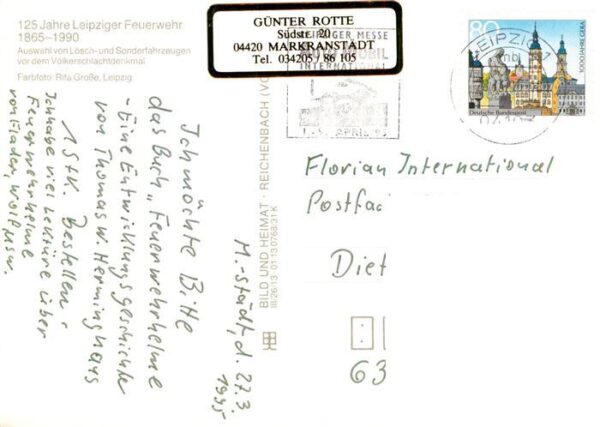 125 Jahre Leipziger Feuerwehr
1865–1990
Auswahl von Lösch- und Sonderfahrzeugen
vor dem Völkerschlachtdenkmal
Farbfoto: Rita Große, Leipzig
GÜNTER ROTTE
Südstr. 20
04420 MARKRANSTÄDT
Tel. 034205 / 86 105
LEIPZIGER MESSE
INTERNATIONAL
APRIL
LEIPZIG
80
1000 JAHRE GERA
Deutsche Bundespost
Ich möchte Bitte
das Buch „Feuerwehrhelme
- Eine Entwicklungsgeschichte
von Thomas W. Herminghaus
1 Stk. Bestellen.
Ich habe viel Lektüre über
Feuerwehrhelme
von Flader, Wolf usw.
M.-städt, d. 27.3
1995
BILD UND HEIMAT · REICHENBACH (VO
III/26/13 01 13 0768/31 K
Florian International
Postfac
Diet
63